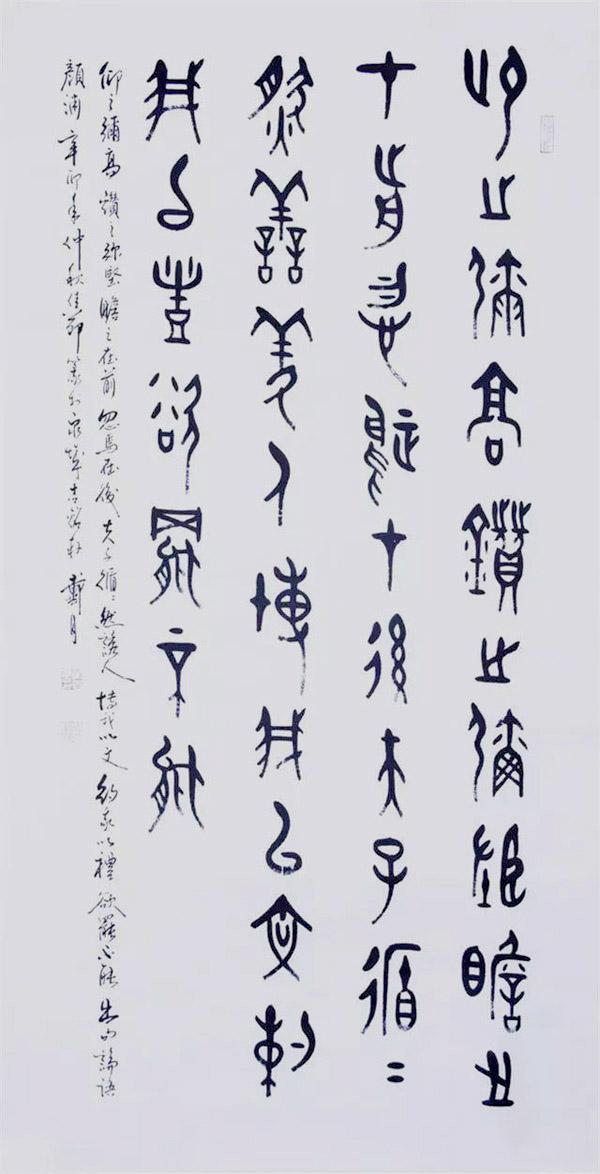 仰之彌高鑽之彌堅瞻之
在前忽焉在後夫子循〻
然善誘人博我以文約
我以禮欲罷不能
仰之彌高鑽之彌堅瞻之在前忽焉在後夫子循〻然誘人博我以文約我以禮欲罷不能出自論語
顏淵辛卯年仲秋佳節篆書